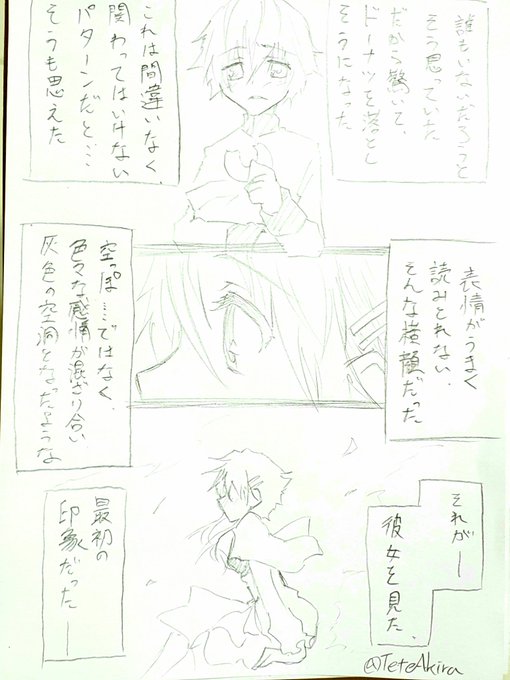 誰もいないだろうと
そう思っていた
だから驚いて、
ドーナツを落とし
そうになった
これは間違いなく、
関わってはいけない
パターンだと…
そうも思えた
表情がうまく
読みとれない、
そんな横顔だった
空っぽ……ではなく、
色々な感情が混ざり合い
灰色の空洞となったような
それが―
彼女を見た、
最初の
印象だった―
@TeteAkira